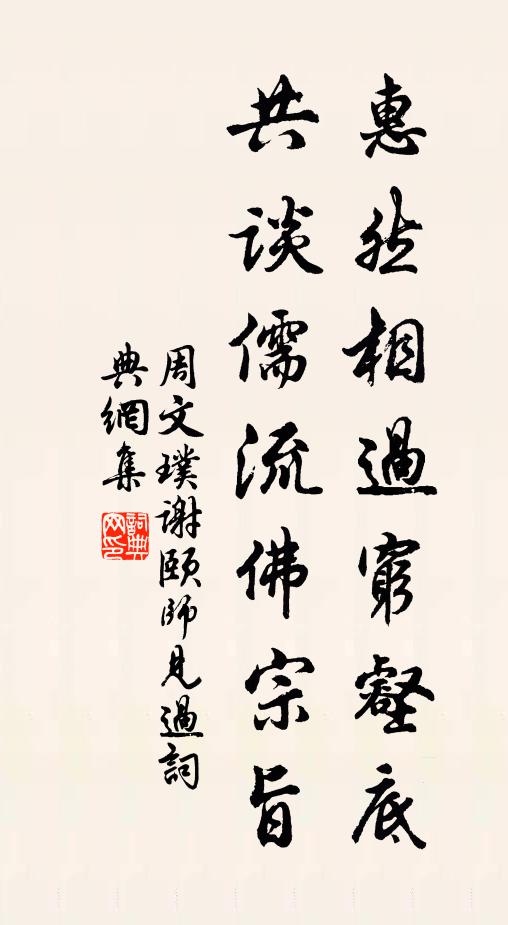 惠然相過窮壑底
共談儒流佛宗旨
周文璞謝頤師見過詞
典網集
詞典网印